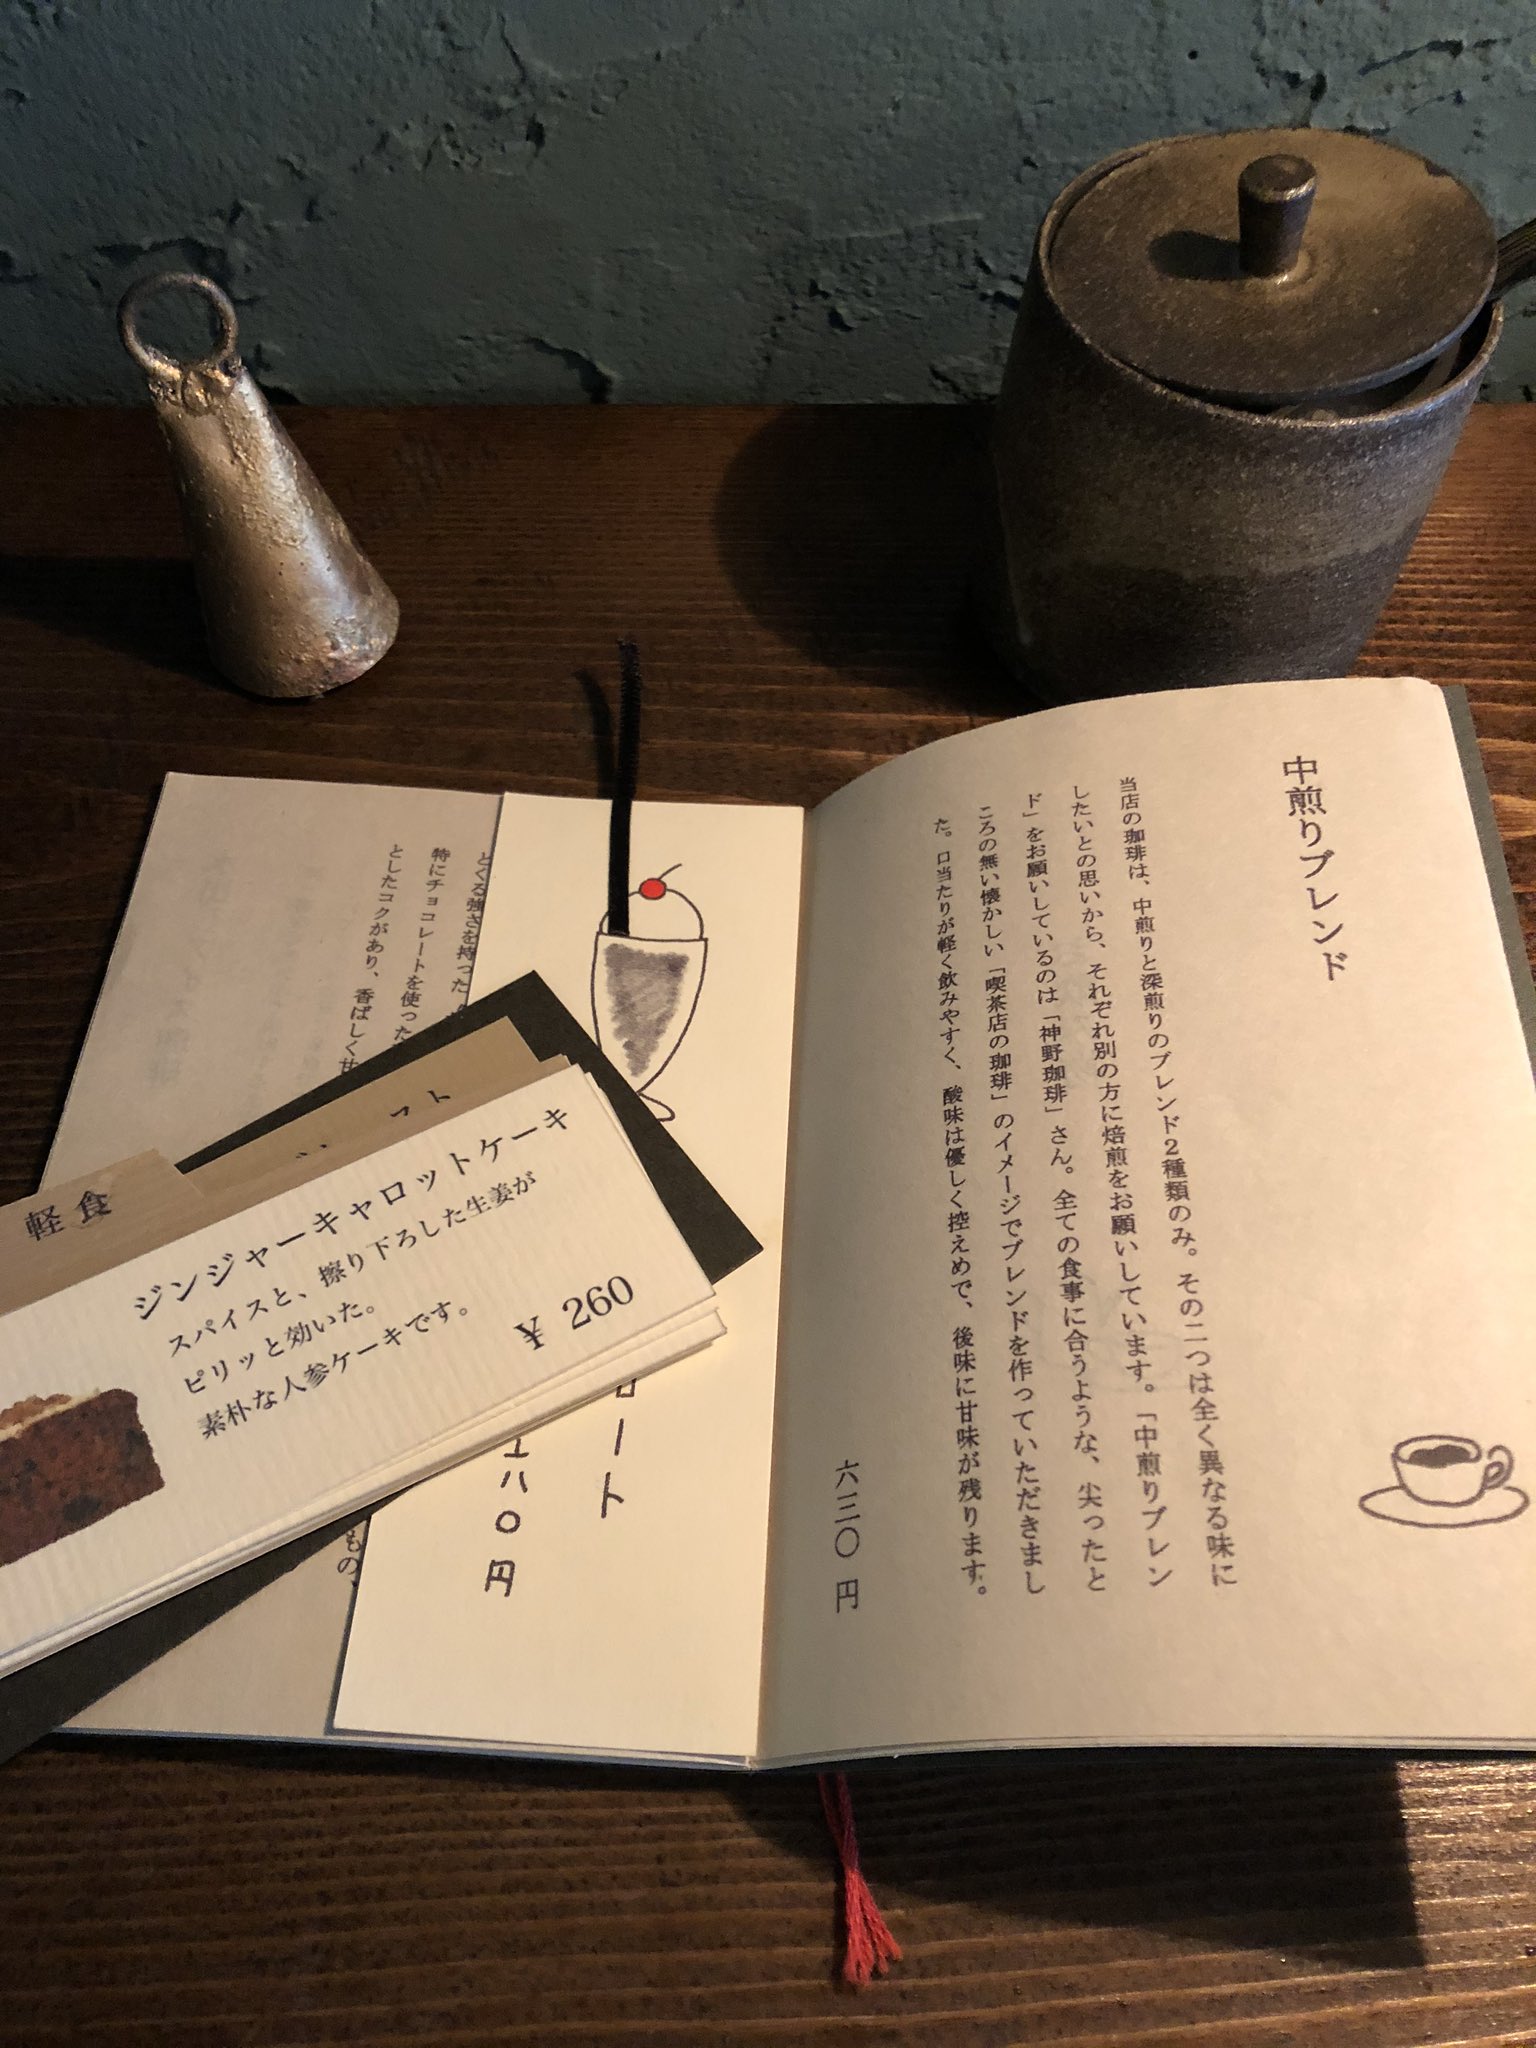 中煎りブレンド
当店の珈琲は、中煎りと深煎りのブレンド2種類のみ。その二つは全く異なる味に
したいとの思いから、それぞれ別の方に焙煎をお願いしています。「中煎りブレン
ド」をお願いしているのは「神野珈琲」さん。全ての食事に合うような、尖ったと
ころの無い懐かしい「喫茶店の珈琲」のイメージでブレンドを作っていただきまし
た。口当たりが軽く飲みやすく、酸味は優しく控えめで、後味に甘味が残ります。
六三〇円
ロート
八〇円
とくる強さを持った
特にチョコレートを使った
としたコクがあり、香ばしく甘
もの、
軽食
ジンジャーキャロットケーキ
スパイスと、擦り下ろした生姜が
ピリッと効いた。
素朴な人参ケーキです。
¥ 260